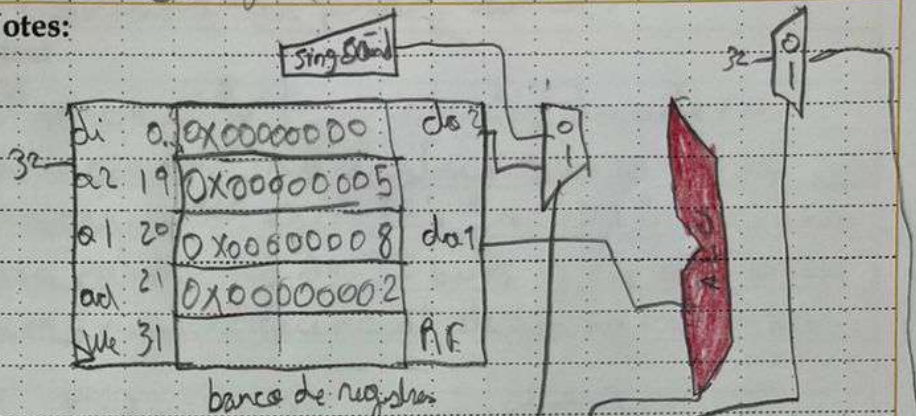 Notes:
32 0 1
0 1
di 0 0x00000000 do2
32
a2 19 0x00000005
a1 20 0x00000008 do1
ad 21 0x00000002
we 31 RF
banco de registres